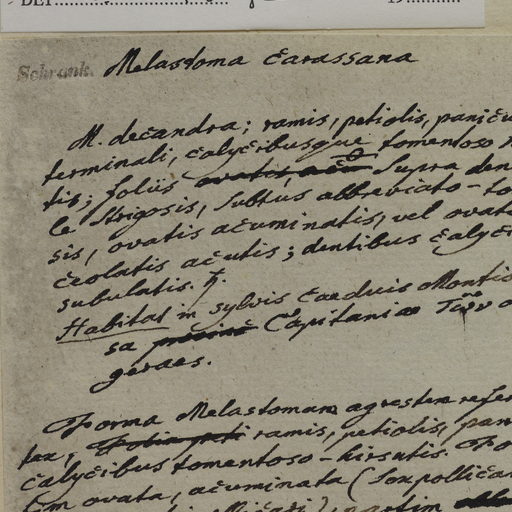 DET. 19
Schrank. Melastoma Carassana
M. decandra; ramis, petiolis, panicu
terminali, calycibusque tomentoso
tis; foliis supra den
le strigosis, subtus abbreviato-to
sis, ovatis acuminatis, vel ovato
ceolatis acutis; dentibus calyci
subulatis. ♄.
Habitat in sylvis caeduis Montio
sa Capitaniae
geraes.
Forma Melastomam agrestem refer
tur; ramis, petiolis, pan
calycibus tomentoso-hirsutis. Fo
ovata, acuminata (sexpollica
partim